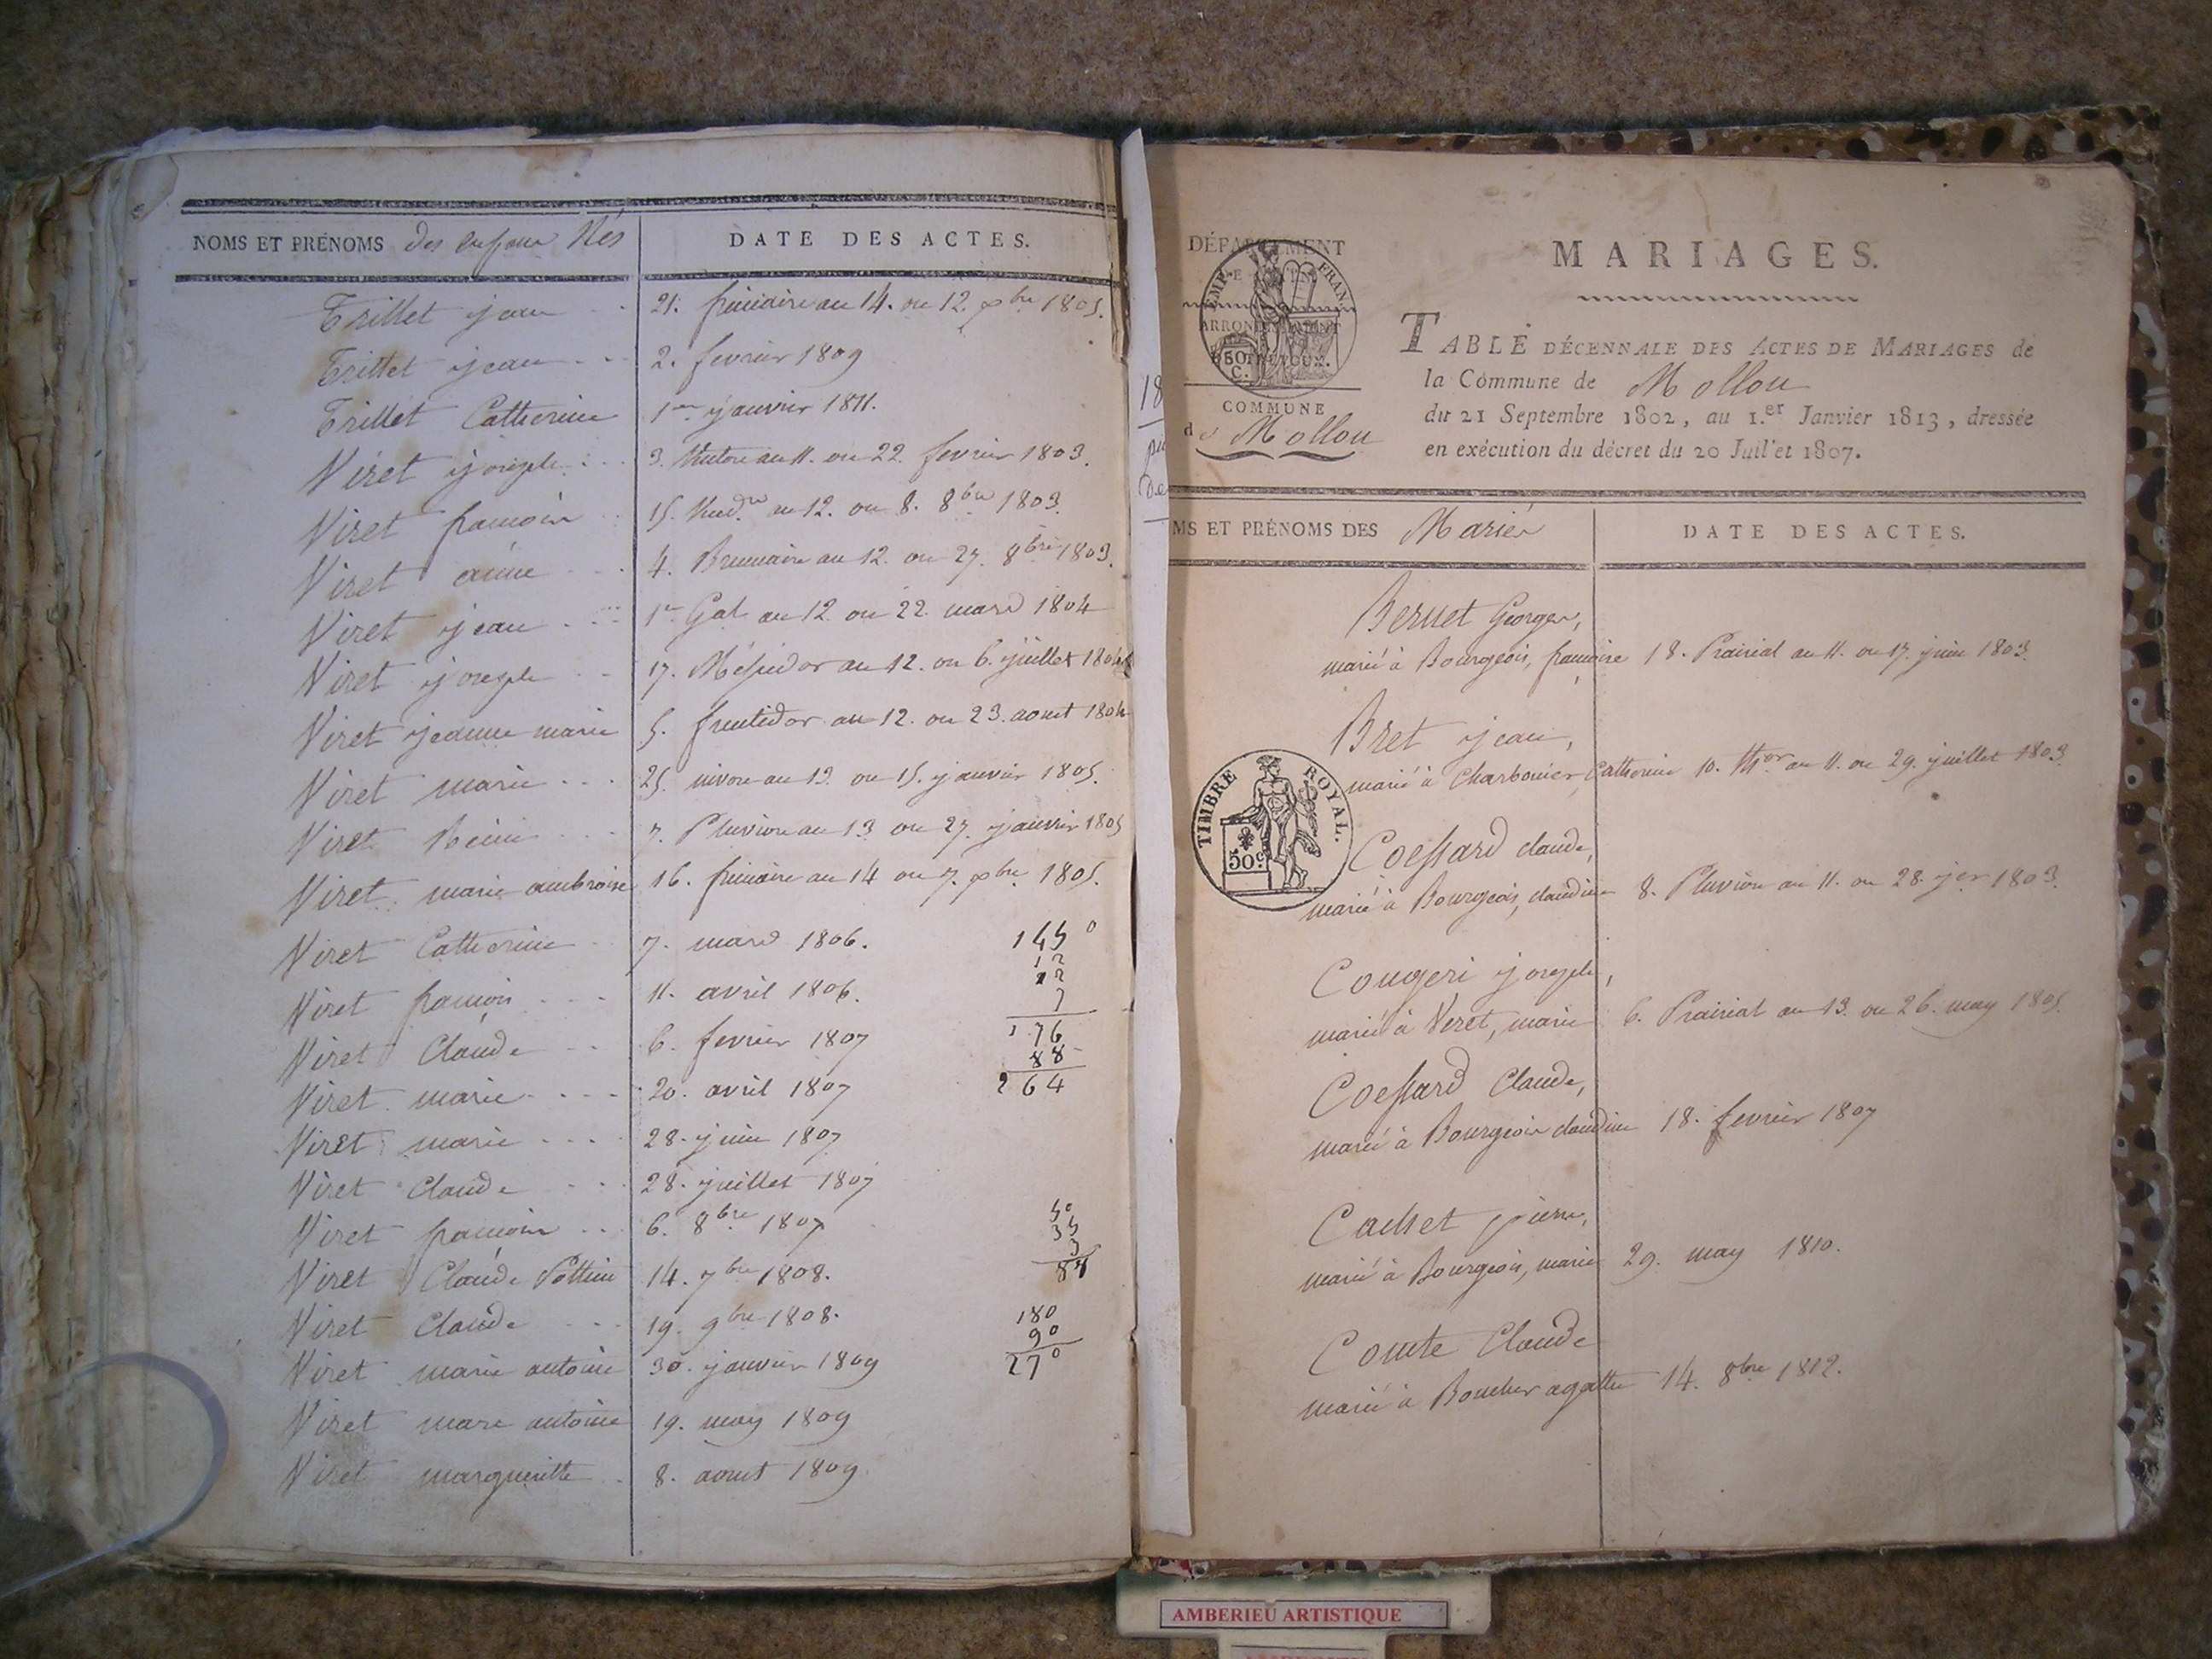 NOMS ET PRÉNOMS des enfans Nés
DATE DES ACTES.
Trillet jean 21. frimaire an 14. ou 12. xbre 1805.
Trillet jean 2. fevrier 1809
Trillet Catherine 1er janvier 1811.
Viret joseph 3. Ventose an 11. ou 22. fevrier 1803.
Viret francois 15. Vend.re an 12. ou 8. 8bre 1803.
Viret aimé 4. Brumaire an 12. ou 27. 8bre 1803.
Viret jean 1er Gal an 12. ou 22. mars 1804
Viret joseph 17. Messidor an 12. ou 6. juillet 1804
Viret jeanne marie 5. fructidor an 12. ou 23. aout 1804
Viret marie 25. nivose an 13. ou 15. janvier 1805.
Viret 7. Pluviose an 13 ou 27. janvier 1805
Viret marie ambroise 16. frimaire an 14 ou 7. xbre 1805.
Viret Catherine 7. mars 1806.
Viret francois 11. avril 1806.
Viret Claude 6. fevrier 1807
Viret marie 20. avril 1807
Viret marie 28. juin 1807
Viret Claude 28. juillet 1807
Viret francois 6. 8bre 1807
Viret Claude 14. 7bre 1808.
Viret Claude 19. 9bre 1808.
Viret marie antoine 30. janvier 1809
Viret marc antoine 19. may 1809
Viret margueritte 8. aout 1809
145
12
12
7
176
88
264
50
35
3
88
180
90
270
DÉPARTEMENT
DE L'AIN
EMP. FRAN.
ARRONDISSEMENT
50
C.
COMMUNE
de Mollon
MARIAGES.
TABLE DÉCENNALE DES ACTES DE MARIAGES de
la Commune de Mollon
du 21 Septembre 1802, au 1.er Janvier 1813, dressée
en exécution du décret du 20 Juillet 1807.
MS ET PRÉNOMS DES Mariés
DATE DES ACTES.
Bernet Georges,
marié à Bourgeois, francoise 18. Prairial an 11. ou 17. juin 1803.
Bret jean,
marié à Charbonier, Catherine 10. Thor an 11. ou 29. juillet 1803
TIMBRE ROYAL.
50c
Coessard claude,
marié à Bourgeois, claudine 8. Pluviose an 11. ou 28. jer 1803.
Cougeri joseph,
marié à Veret, marie 6. Prairial an 13. ou 26. may 1805.
Coessard Claude,
marié à Bourgeois claudine 18. fevrier 1807
Cachet pierre,
marié à Bourgeois, marie 29. may 1810.
Comte Claude
marié à Boucher agathe 14. 8bre 1812.
AMBERIEU ARTISTIQUE